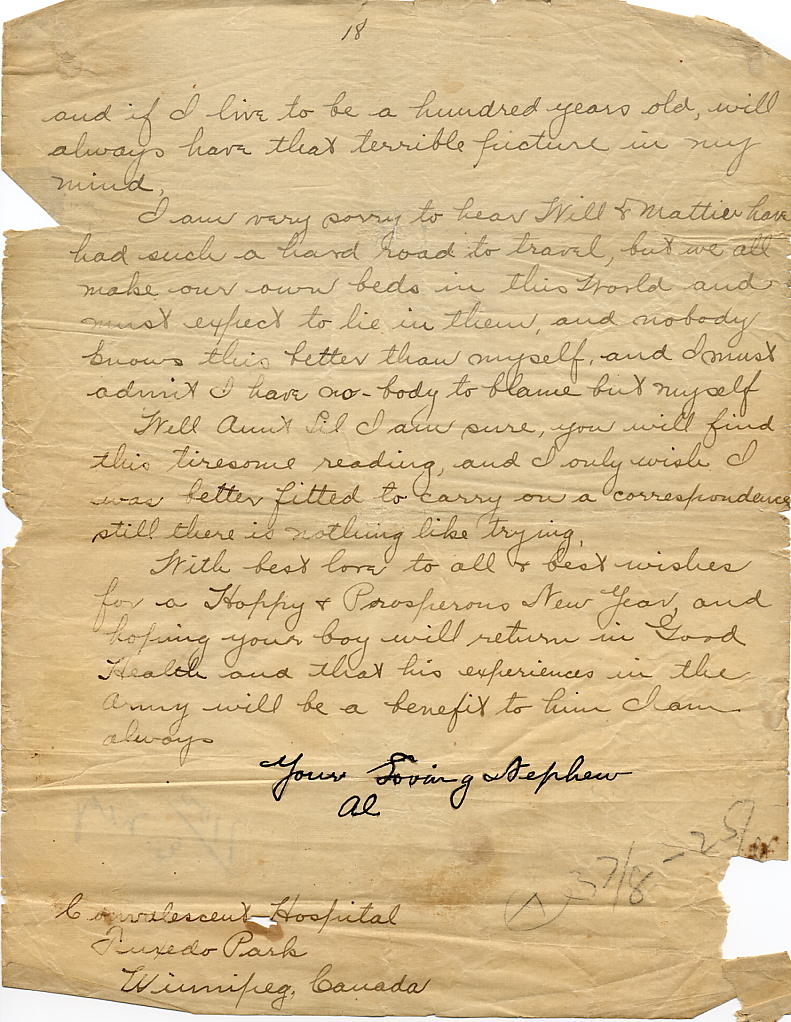 18
and if I live to be a hundred years old, will
always have that terrible picture in my
mind,
I am very sorry to hear Will & Mattie have
had such a hard road to travel, but we all
make our own beds in this World and
must expect to lie in them, and nobody
knows this better than myself, and I must
admit I have no-body to blame but myself
Well Aunt Lil I am sure, you will find
this tiresome reading, and I only wish I
was better fitted to carry on a correspondence
still there is nothing like trying,
With best love to all & best wishes
for a Happy & Prosperous New Year, and
hoping your boy will return in Good
Health and that his experiences in the
Army will be a benefit to him I am
always
Your Loving Nephew
Al
37/8 - 25/
Convalescent Hospital
Tuxedo Park
Winnipeg, Canada